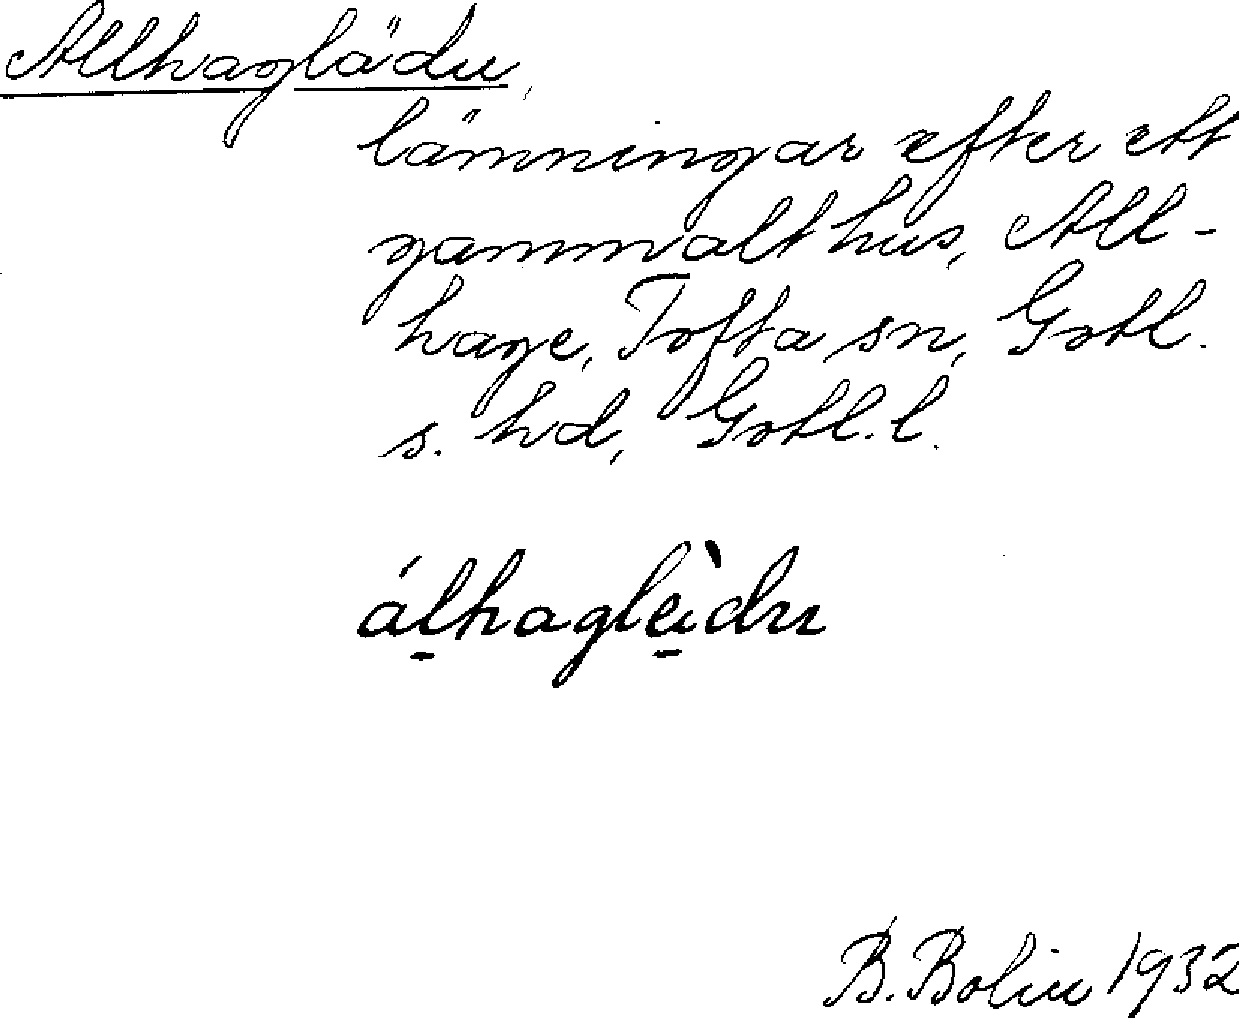 Allhaglädu,
lämningar efter ett
gammalt hus, All-
hage, Tofta sn, Gotl.
s. hd, Gotl. l.
álhaglèidu
B. Bolin 1932